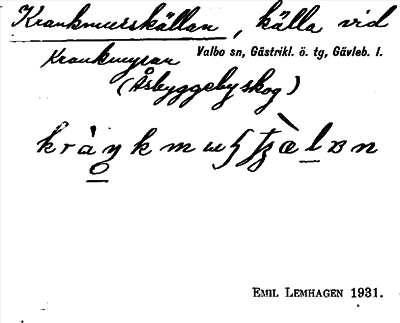 Krankmurskällan, källa vid
Krankmyran Valbo sn, Gästrikl. ö. tg, Gävleb. l.
(Åsbyggeby skog)
EMIL LEMHAGEN 1931.